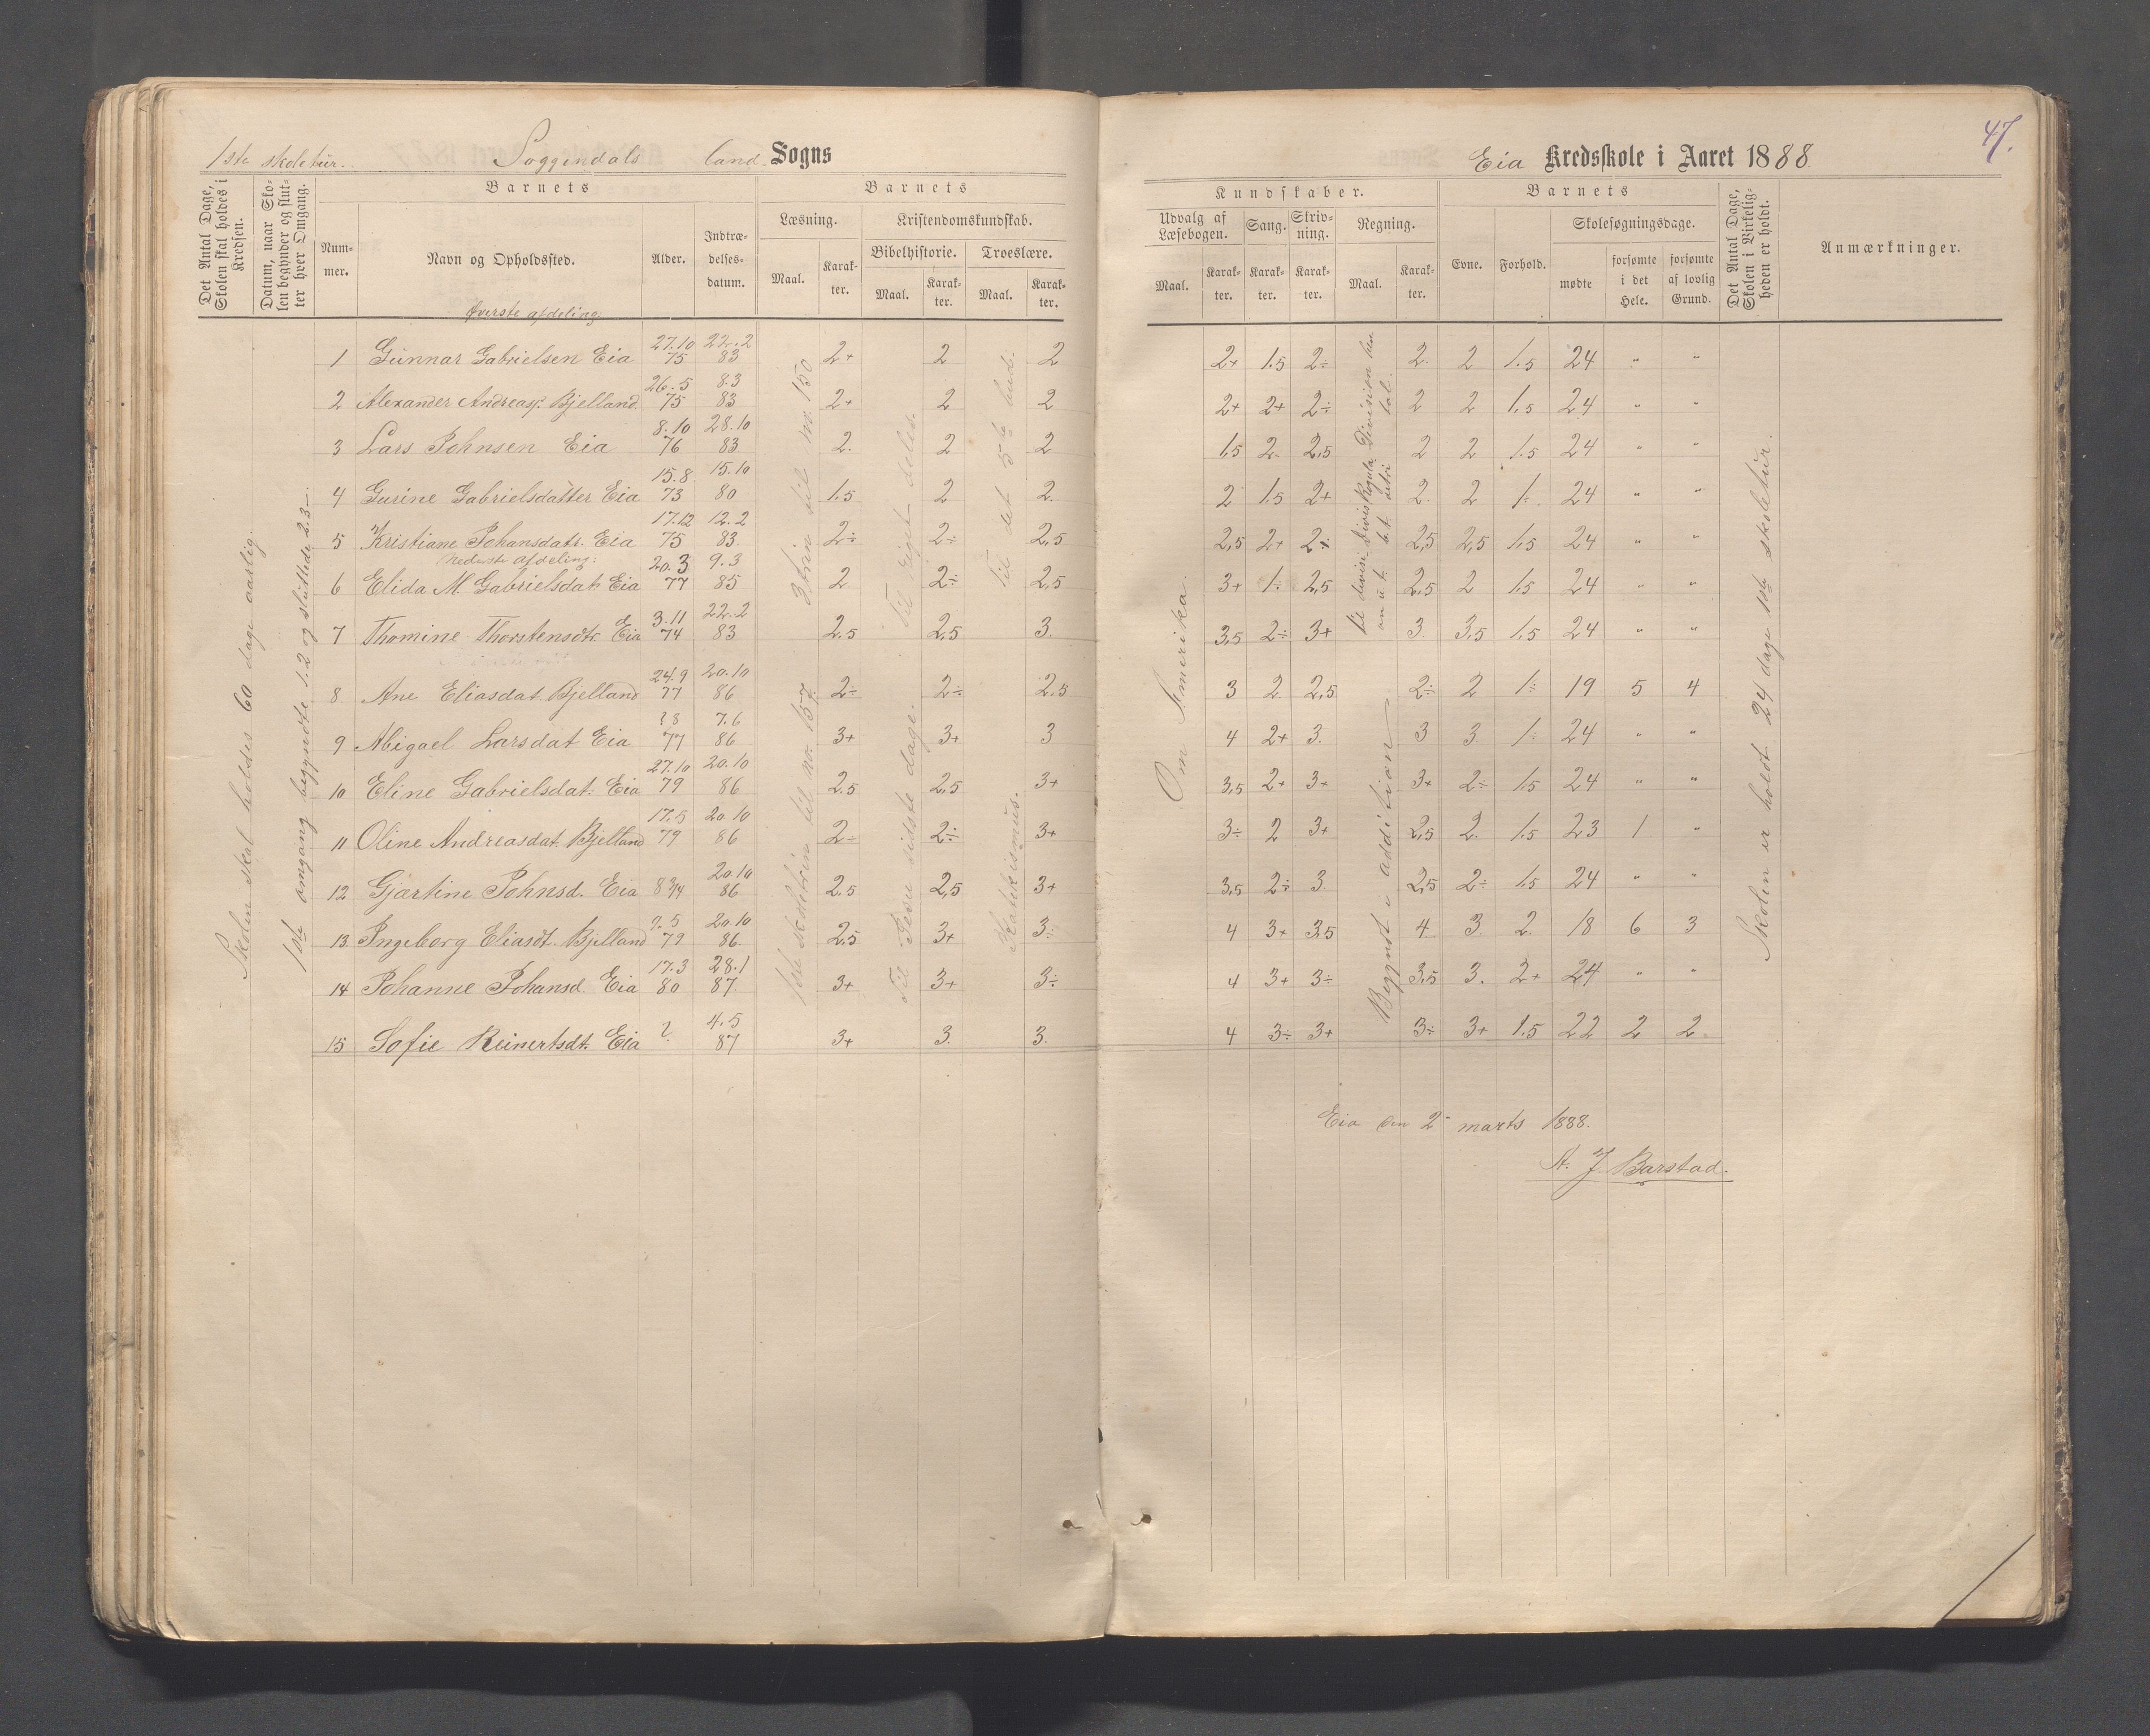 1ste skoletur. Soggendals land Sogns
Det Antal Dage, Skolen skal holdes i Kredsen.
Datum, naar Skolen begynder og slutter hver Omgang.
Barnets
Nummer.
Navn og Opholdssted.
Alder.
Indtrædelsesdatum.
Barnets
Læsning.
Maal. Karakter.
Kristendomskundskab.
Bibelhistorie. Troeslære.
Maal. Karakter. Maal. Karakter.
Øverste afdeling
1 Gunnar Gabrielsen Eia 27.10 75 22.2 83 2+ 2 2
2 Alexander Andreas. Bjelland 26.5 75 8.3 83 2+ 2 2
3 Lars Johnsen Eia 8.10 76 28.10 83 2. 2 2
4 Gurine Gabrielsdatter Eia 15.8 73 15.10 80 1.5 2 2.
5 Kristiane Johansdatr. Eia 17.12 75 12.2 83. 2÷ 2÷ 2,5
Nederste afdeling.
6 Elida M. Gabrielsdat. Eia 20.3 77 9.3 85 2 2÷ 2,5
7 Thomine Thorstensdtr. Eia 3.11 74 22.2 83 2.5 2,5 3.
8 Ane Eliasdat. Bjelland 24.9 77 20.10 86 2÷ 2÷ 2.5
9 Abigael Larsdat Eia 77 7.6 86 3+ 3+ 3
10 Eline Gabrielsdat. Eia 27.10 79 20.10 86 2.5 2,5 3+
11 Oline Andreasdat. Bjelland 17.5 79 20.10 86 2÷ 2÷ 3+
12 Gjartine Johnsd. Eia 8 3/4 20.10 86 2.5 2,5 3+
13. Ingeborg Eliasdt. Bjelland 79 20.10 86. 2.5 3+ 3÷
14 Johanne Johansd. Eia 17.3 80 28.1 87. 3+ 3+ 3÷
15 Sofie Reinertsdt. Eia ? 4.5 87 3+ 3. 3.
Skolen skal holdes 60 dage aarlig.
1ste omgang begyndte 1.2 og sluttede 2.3
3 trin til nr. 150
1ste skoletrin til nr. 157.
Til sidste dage.
Til det 5te bud.
Katekismus.
47.
Eia Kredsskole i Aaret 1888.
Kundskaber.
Udvalg af Læsebogen.
Maal. Karakter.
Sang.
Karakter.
Skrivning.
Karakter.
Regning.
Maal. Karakter.
Barnets
Evne. Forhold.
Skolesøgningsdage.
mødte
forsømte i det Hele.
forsømte af lovlig Grund.
Det Antal Dage, Skolen i Virkeligheden er holdt.
Anmærkninger.
2+ 1.5 2÷ 2. 2 1.5 24 " "
2+ 2+ 2÷ 2 2 1.5 24 " "
1,5 2 2,5 2 2 1.5 24 " "
2 1.5 2+ 2. 2 1÷ 24 " "
2,5 2+ 2÷ 2,5 2,5 1.5 24 " "
3+ 1÷ 2,5 2,5 2 1.5 24 " "
3,5 2÷ 3+ 3. 3.5 1.5 24 " "
3 2 2,5 2÷ 2 1÷ 19 5 4
4 2+ 3. 3 3 1÷ 24 " "
3,5 2+ 3+ 3+ 2÷ 1.5 24 " "
3÷ 2 3+ 2,5 2. 1.5 23 1 "
3,5 2÷ 3 2,5 2÷ 1.5 24 " "
4 3+ 3.5 4 3. 2. 18 6 3
4 3+ 3÷ 3,5 3. 2+ 24 " "
4 3÷ 3+ 3÷ 3+ 1.5 22 2 2.
Om Amerika.
Begynt i addition
Skolen er holdt 24 dage 1ste skoletur.
Eia den 2 marts 1888.
A. J. Barstad.